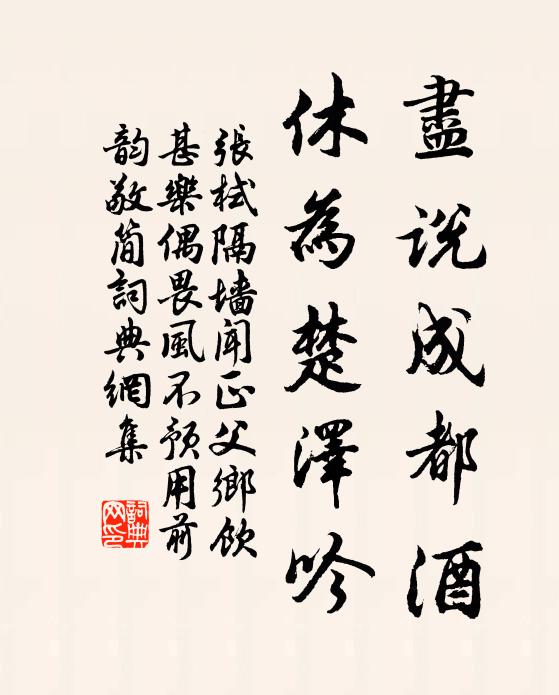 盡説成都酒
休為楚澤吟
張栻隔墻聞正父鄉飲
甚樂偶畏風不預用前
韵敬簡詞典網集
詞典网印